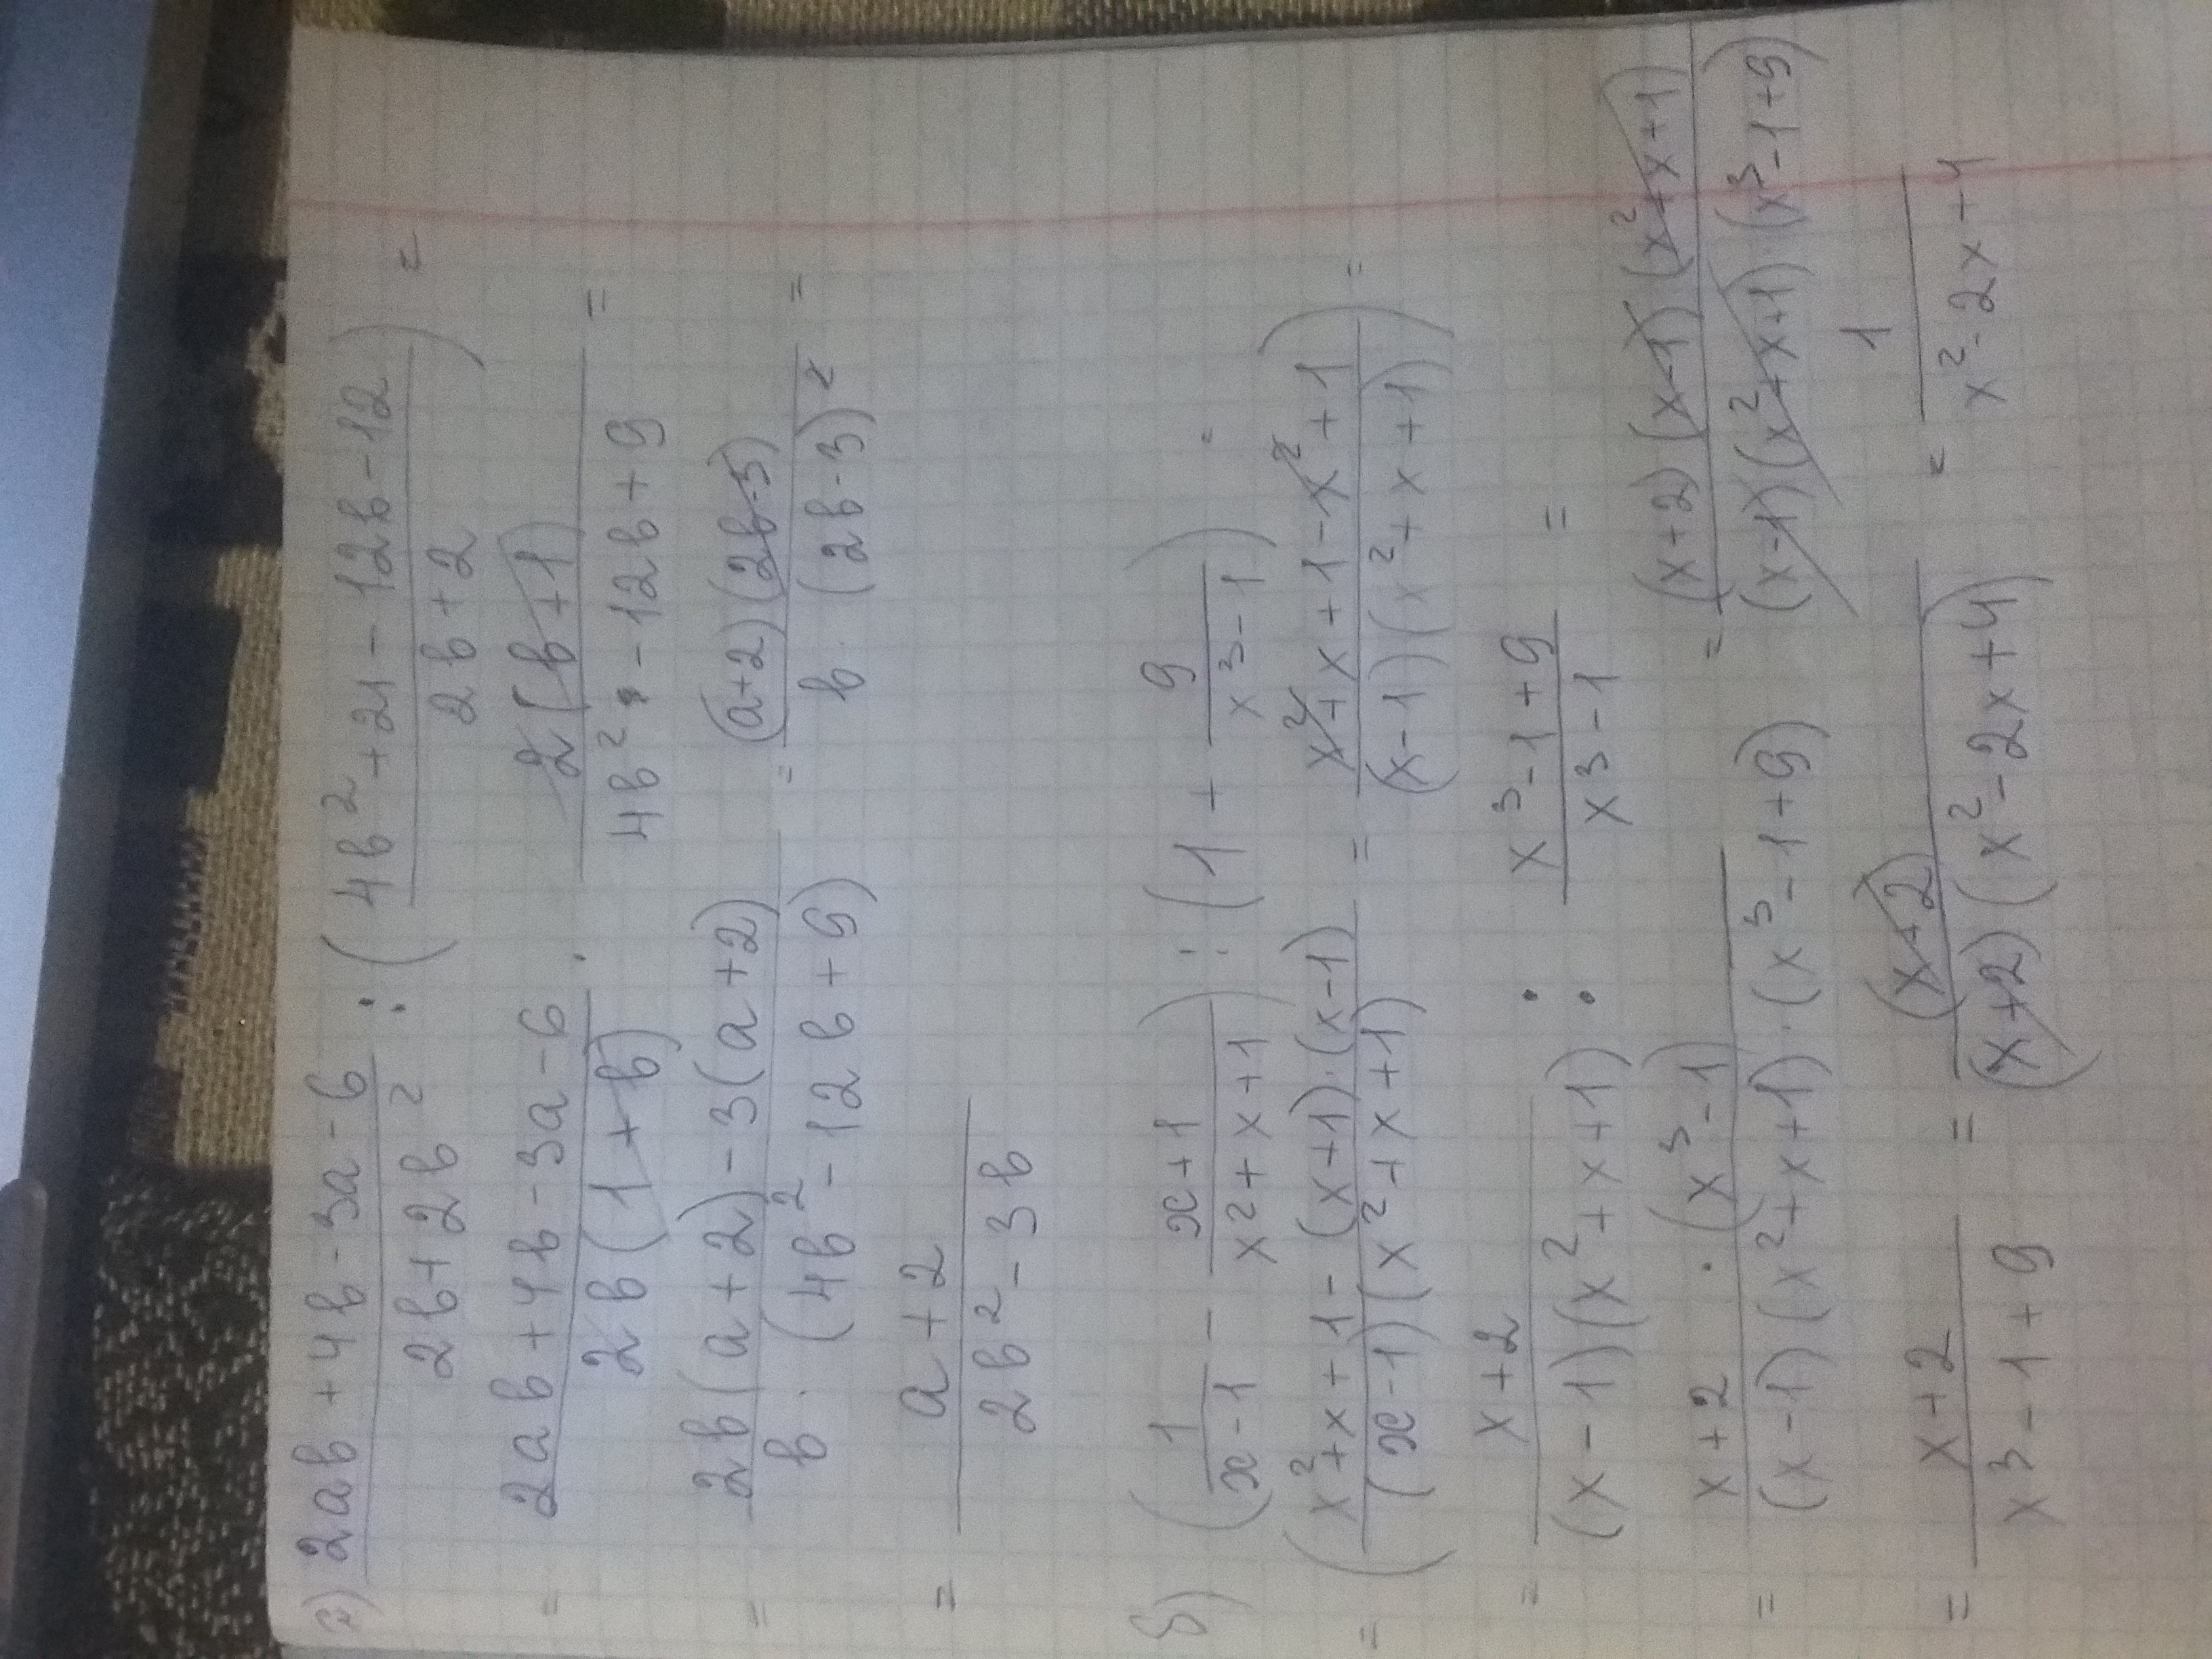 а) (2ab + 4b - 3a - 6)/(2b + 2b²) : ((4b² + 21 - 12b - 12)/(2b + 2)) =
= (2ab + 4b - 3a - 6)/(2b(1 + b)) · (2(b + 1))/(4b² - 12b + 9) =
= (2b(a + 2) - 3(a + 2))/(b · (4b² - 12b + 9)) = ((a + 2)(2b - 3))/(b · (2b - 3)²) =
= (a + 2)/(2b² - 3b)
б) (1/(x - 1) - (x + 1)/(x² + x + 1)) : (1 + 9/(x³ - 1)) =
= ((x² + x + 1 - (x + 1)·(x - 1))/((x - 1)(x² + x + 1)) = (x² + x + 1 - x² + 1)/((x - 1)(x² + x + 1))) =
= (x + 2)/((x - 1)(x² + x + 1)) : (x³ - 1 + 9)/(x³ - 1) =
= (x + 2 · (x³ - 1))/((x - 1)(x² + x + 1) · (x³ - 1 + 9)) = ((x + 2)(x - 1)(x² + x + 1))/((x - 1)(x² + x + 1) · (x³ - 1 + 9))
= (x + 2)/(x³ - 1 + 9) = (x + 2)/((x + 2)(x² - 2x + 4)) = 1/(x² - 2x + 4)